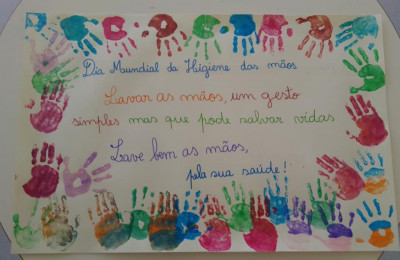 Dia Mundial da Higiene das mãos
Lavar as mãos, um gesto
simples mas que pode salvar vidas
Lave bem as mãos,
pela sua saúde!